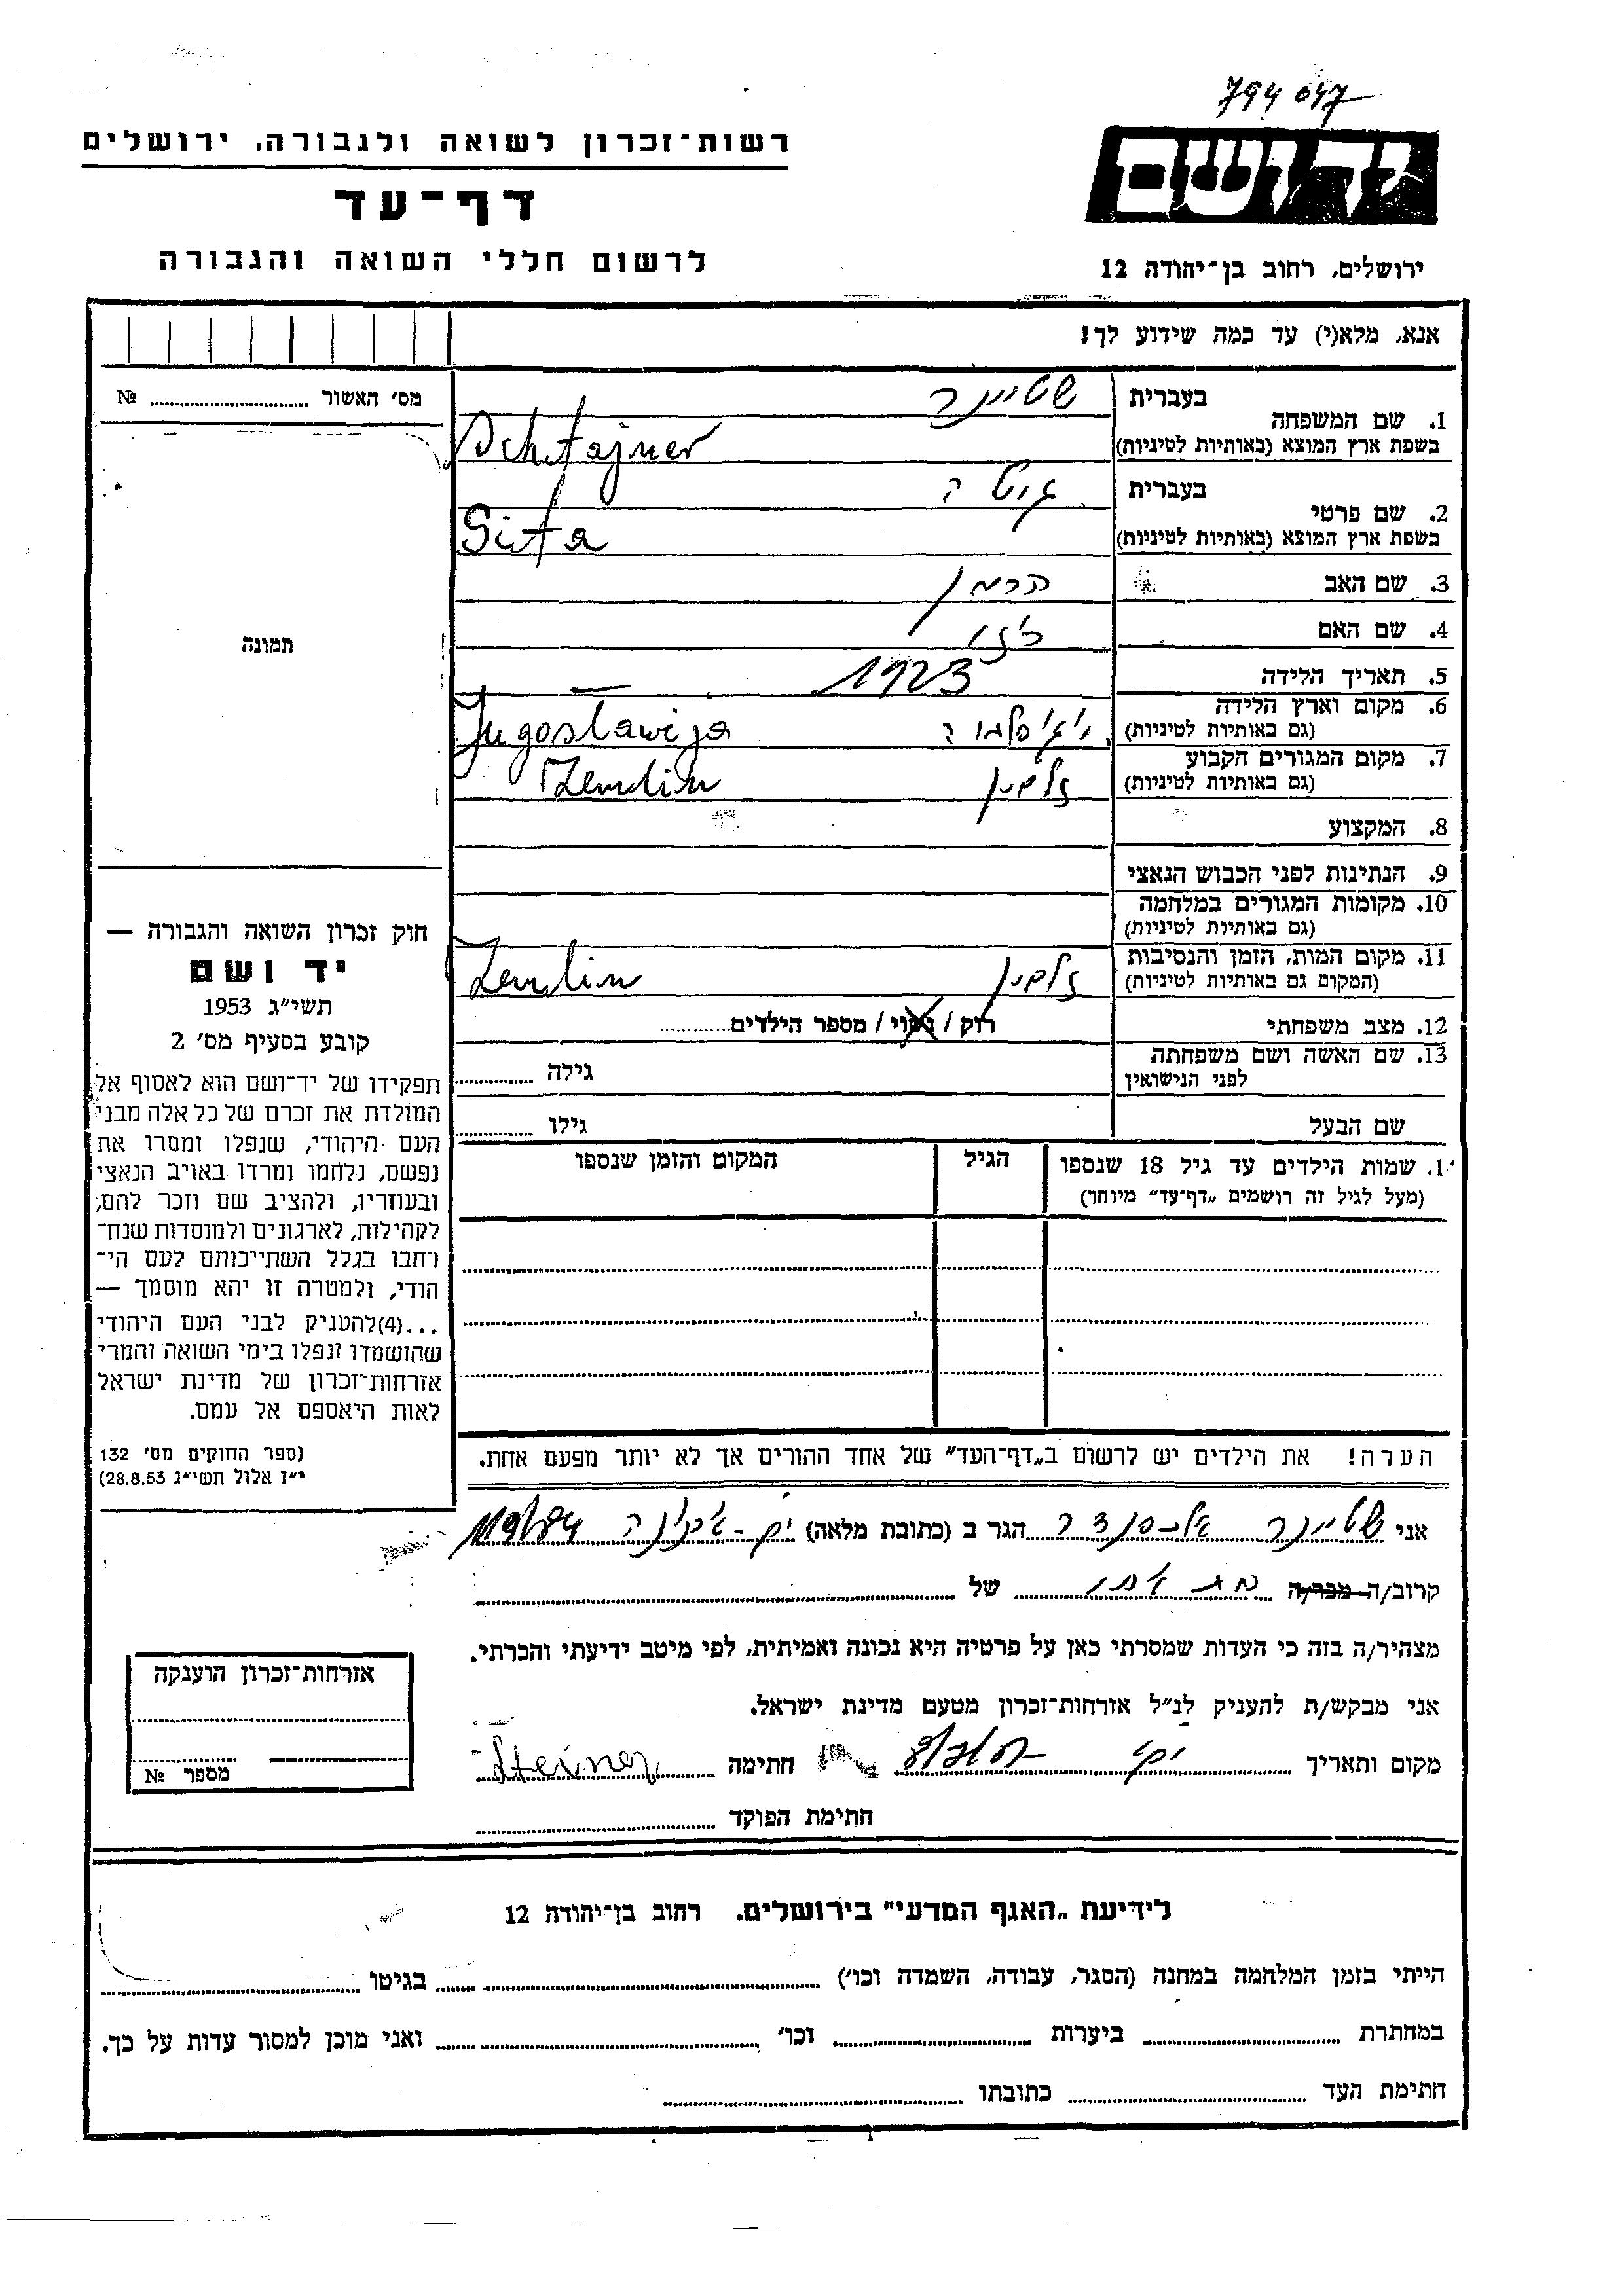 794047
יד ושם
רשות־זכרון לשואה ולגבורה, ירושלים
דף־עד
לרשום חללי השואה והגבורה
ירושלים, רחוב בן־יהודה 12
אנא, מלא(י) עד כמה שידוע לך!
מס׳ האשור № ........
בעברית שטיינר
1. שם המשפחה
בשפת ארץ המוצא (באותיות לטיניות) Schtajner
בעברית גיטה
2. שם פרטי
בשפת ארץ המוצא (באותיות לטיניות) Gita
3. שם האב הרמן
4. שם האם
5. תאריך הלידה 1923 —
6. מקום וארץ הלידה
(גם באותיות לטיניות) יוגוסלביה Jugoslawija
7. מקום המגורים הקבוע
(גם באותיות לטיניות) זמלין Zemlin
8. המקצוע
9. הנתינות לפני הכבוש הנאצי
10. מקומות המגורים במלחמה
(גם באותיות לטיניות)
11. מקום המות, הזמן והנסיבות
(המקום גם באותיות לטיניות) זמלין Zemlin
12. מצב משפחתי רוק / נשוי / מספר הילדים ........
13. שם האשה ושם משפחתה
לפני הנישואין גילה ........
שם הבעל גילו ........
תמונה
חוק זכרון השואה והגבורה —
יד ושם
תשי״ג 1953
קובע בסעיף מס׳ 2
תפקידו של יד־ושם הוא לאסוף אל
המולדת את זכרם של כל אלה מבני
העם היהודי, שנפלו ומסרו את
נפשם, נלחמו ומרדו באויב הנאצי
ובעוזריו, ולהציב שם וזכר להם,
לקהילות, לארגונים ולמוסדות שנח־
רחבו בגלל השתייכותם לעם הי־
הודי, ולמטרה זו יהא מוסמך —
...(4)להעניק לבני העם היהודי
שהושמדו ונפלו בימי השואה והמרי
אזרחות־זכרון של מדינת ישראל
לאות היאספם אל עמם.
(ספר החוקים מס׳ 132
י״ז אלול תשי״ג 28.8.53)
1. שמות הילדים עד גיל 18 שנספו הגיל המקום והזמן שנספו
(מעל לגיל זה רושמים „דף־עד״ מיוחד)
הערה! את הילדים יש לרשום ב„דף־העד״ של אחד ההורים אך לא יותר מפעם אחת.
אני שטיינר אלכסנדר הגר ב (כתובת מלאה)
קרוב/ה מכר/ה של
מצהיר/ה בזה כי העדות שמסרתי כאן על פרטיה היא נכונה ואמיתית, לפי מיטב ידיעתי והכרתי.
אני מבקש/ת להעניק לנ״ל אזרחות־זכרון מטעם מדינת ישראל.
מקום ותאריך חתימה Steiner
חתימת הפוקד
אזרחות־זכרון הוענקה
מספר №
לידיעת „האגף המדעי״ בירושלים, רחוב בן־יהודה 12
הייתי בזמן המלחמה במחנה (הסגר, עבודה, השמדה וכו׳) ........ בגיטו ........
במחתרת ........ ביערות ........ וכו׳ ........ ואני מוכן למסור עדות על כך.
חתימת העד ........ כתובתו ........